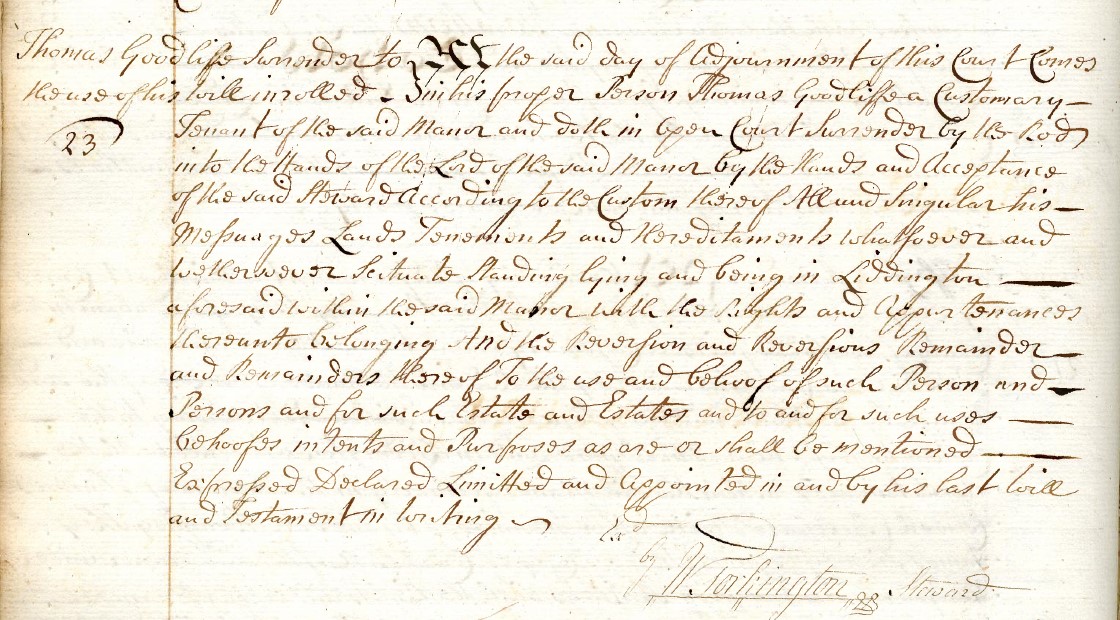 Thomas Goodliffe Surrender to At the said day of Adjournment of this Court Comes
the use of his Will inrolled - In his proper Person Thomas Goodliffe a Customary -
23 Tenant of the said Manor and doth in Open Court Surrender by the Rod
into the Hands of the Lord of the said Manor by the Hands and Acceptance
of the said Steward According to the Custom thereof All and Singular his -
Messuages Lands Tenements and Hereditaments whatsoever and
wethersoever Scituate Standing lying and being in Liddington -
aforesaid within the said Manor with the Rights and Appurtenances
thereunto belonging And the Reversion and Reversions Remainder -
and Remainders thereof To the use and behoof of such Person and -
Persons and for such Estate and Estates and to and for such uses -
behoofes intents and Purposes as are or shall be mentioned -
Expressed Declared Limitted and Appointed in and by his last Will
and Testament in Writing
Exd
by W. Torkington Steward